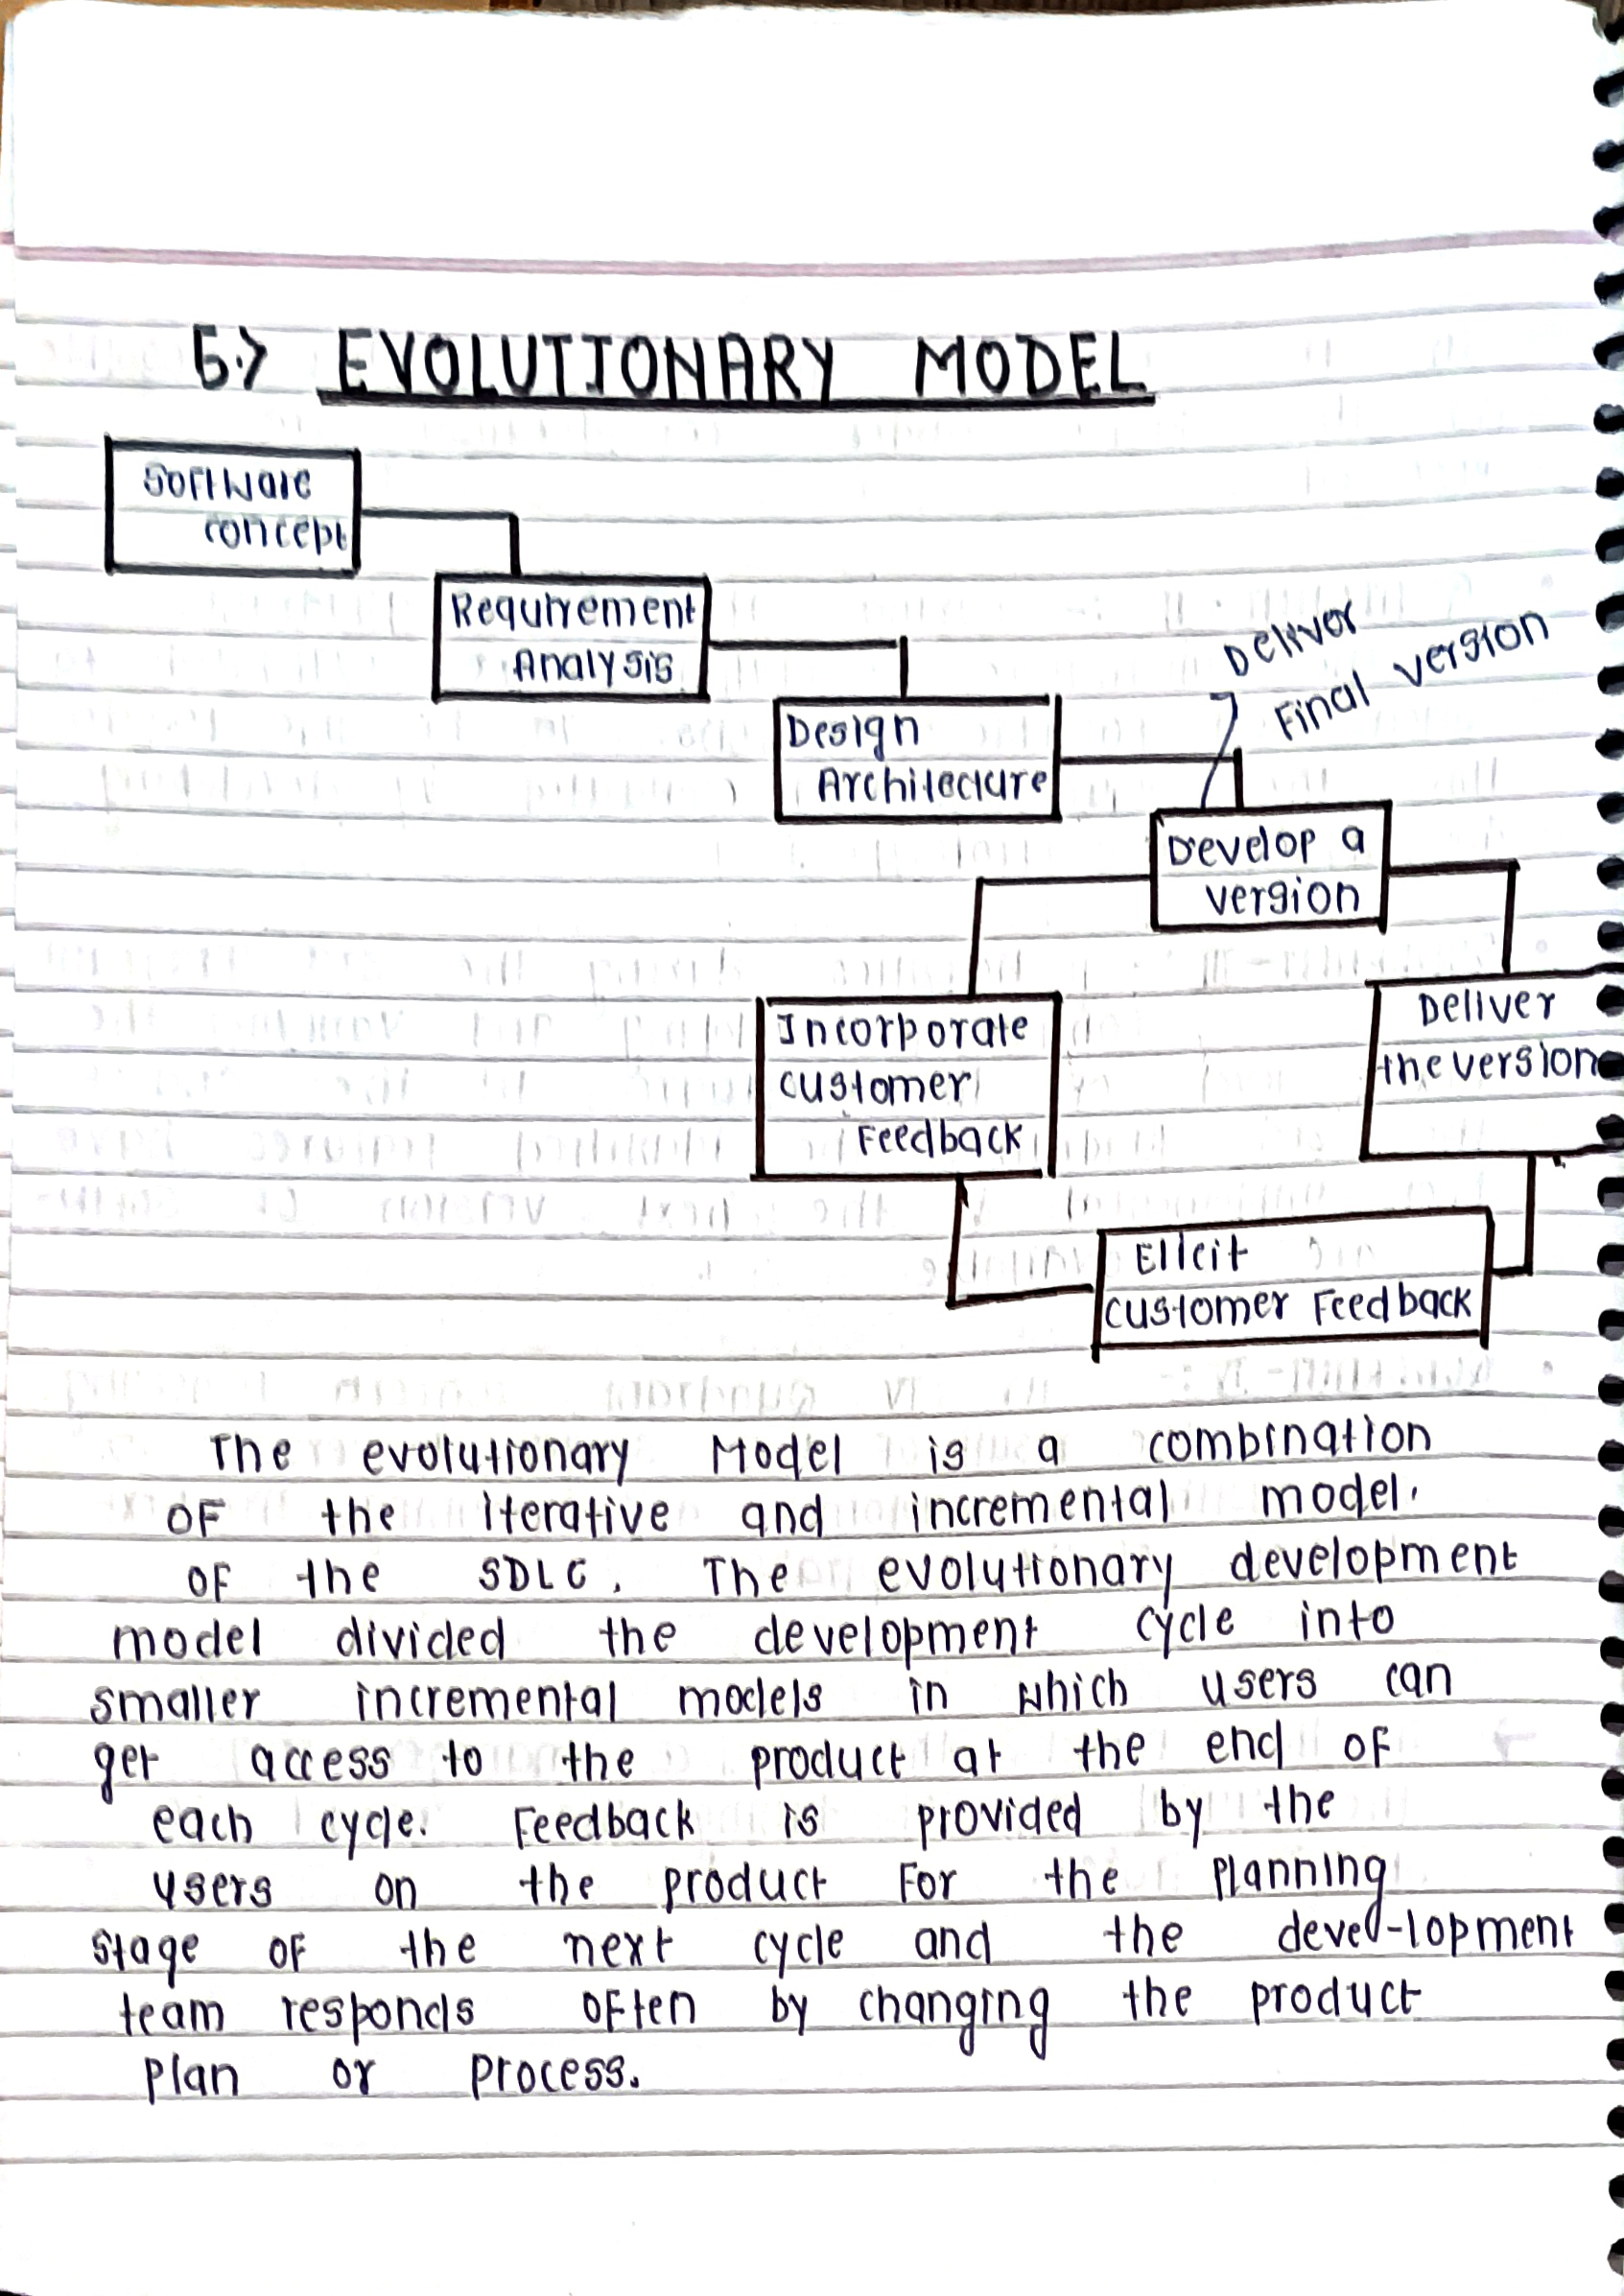 5.> EVOLUTIONARY MODEL
Software
concept
Requirement
Analysis
Deliver
Final version
Design
Architecture
Develop a
version
Incorporate
customer
Feedback
Deliver
the version
Elicit
customer Feedback
The evolutionary Model is a combination
OF the iterative and incremental model.
OF the SDLC. The evolutionary development
model divided the development cycle into
smaller incremental models in which users can
get access to the product at the end OF
each cycle. Feedback is provided by the
users on the product For the planning
stage OF the next cycle and the devel-lopment
team responds OFten by changing the product
plan or process.